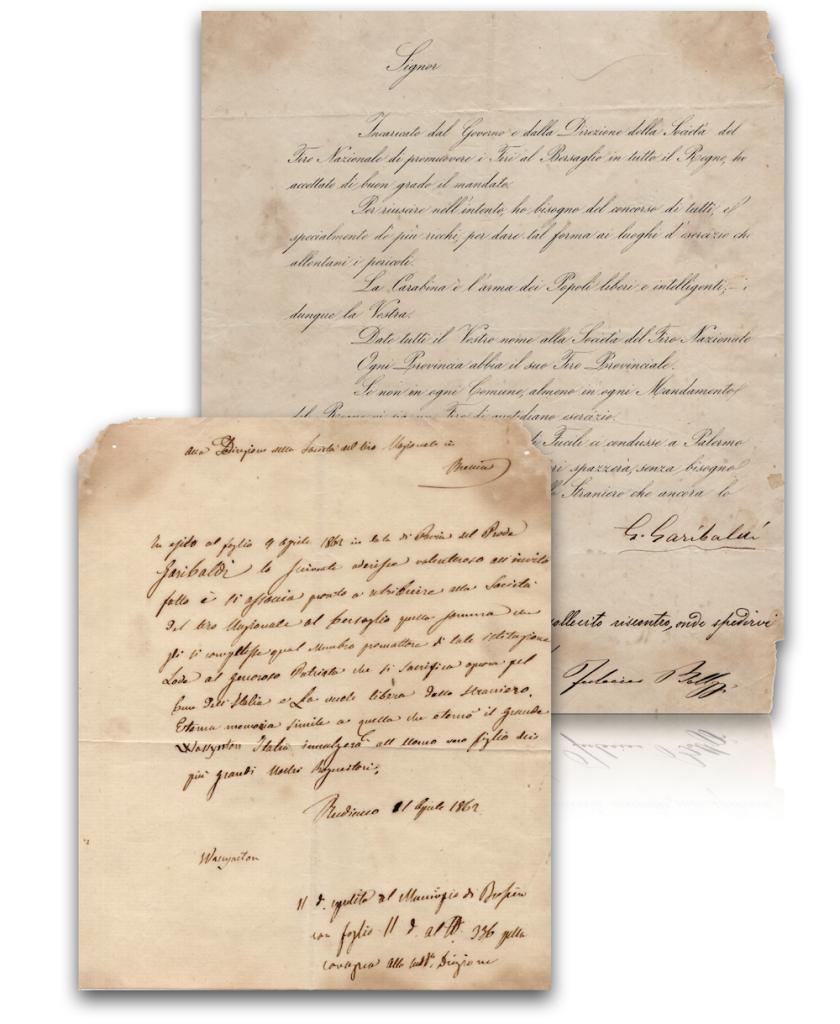 Signor
Incaricato dal Governo e dalla Direzione della Società del
Tiro Nazionale di promuovere i Tiri al Bersaglio in tutto il Regno, ho
accettato di buon grado il mandato.
Per riuscire nell'intento, ho bisogno del concorso di tutti, e
specialmente de' più ricchi, per dare tal forma ai luoghi d'esercizio che
allontani i pericoli.
La Carabina è l'arma dei Popoli liberi e intelligenti; — è
dunque la Vostra.
Date tutti il Vostro nome alla Società del Tiro Nazionale
Ogni Provincia abbia il suo Tiro Provinciale.
Se non in ogni Comune, almeno in ogni Mandamento
del Regno vi sia un Tiro di quotidiano esercizio.
Fucili ci condusse a Palermo
spazzerà, senza bisogno
Straniero che ancora lo
G. Garibaldi
sollecito riscontro, onde spedirvi
Federico
alla Direzione della Società del tiro Nazionale in
Brescia
In esito al foglio 4 Aprile 1862 in data di Pavia del Prode
Garibaldi lo scrivente aderisce volenteroso all'invito
fatto e si associa pronto a retribuire alla Società
del tiro Nazionale al bersaglio quella somma che
gli si compete qual Membro promottore di tale istituzione
Lode al generoso Patriota che si sacrifica ognora pel
bene dell'Italia e La vuole libera dallo straniero.
Eterna memoria simile a quella che eternò il grande
Wasynton Italia innalzerà all'Uomo vero figlio dei
più grandi Nostri
11 Aprile 1862
Wasyncton
11 d. spedito al Municipio di Brescia
con foglio 11 d. al N. 336 per la
consegna alla sudd.a Direzione